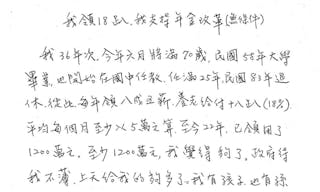 我領18趴,我支持年金改革(無條件)
我36年次,今年六月將滿70歲,民國58年大學
畢業,也開始在國中任教,任滿25年,民國83年退
休,從此每年領八成月薪,養老給付十八趴(18%),
平均每個月至少以5萬元算,至今22年,已領用了
1200萬元,至少1200萬元,我覺得夠了,政府待
我不薄,上天給我的夠多了,我有孩子也有孫